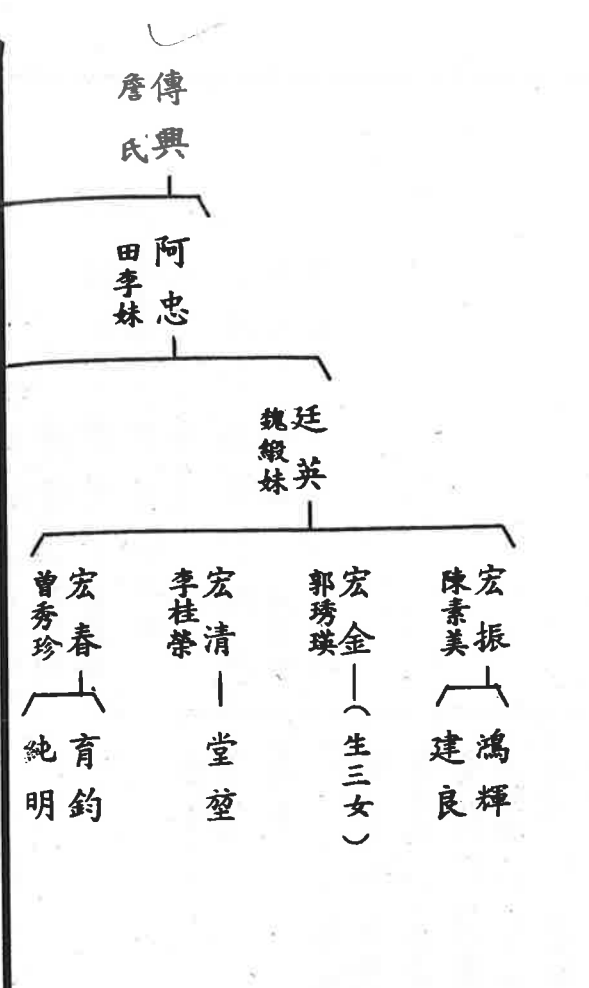 傳興
詹氏
阿忠
田李妹
廷英
魏緞妹
宏振
陳素美
宏金
郭琇瑛
宏清
李桂榮
宏春
曾秀珍
鴻輝
建良
（生三女）
堂堃
育鈞
純明